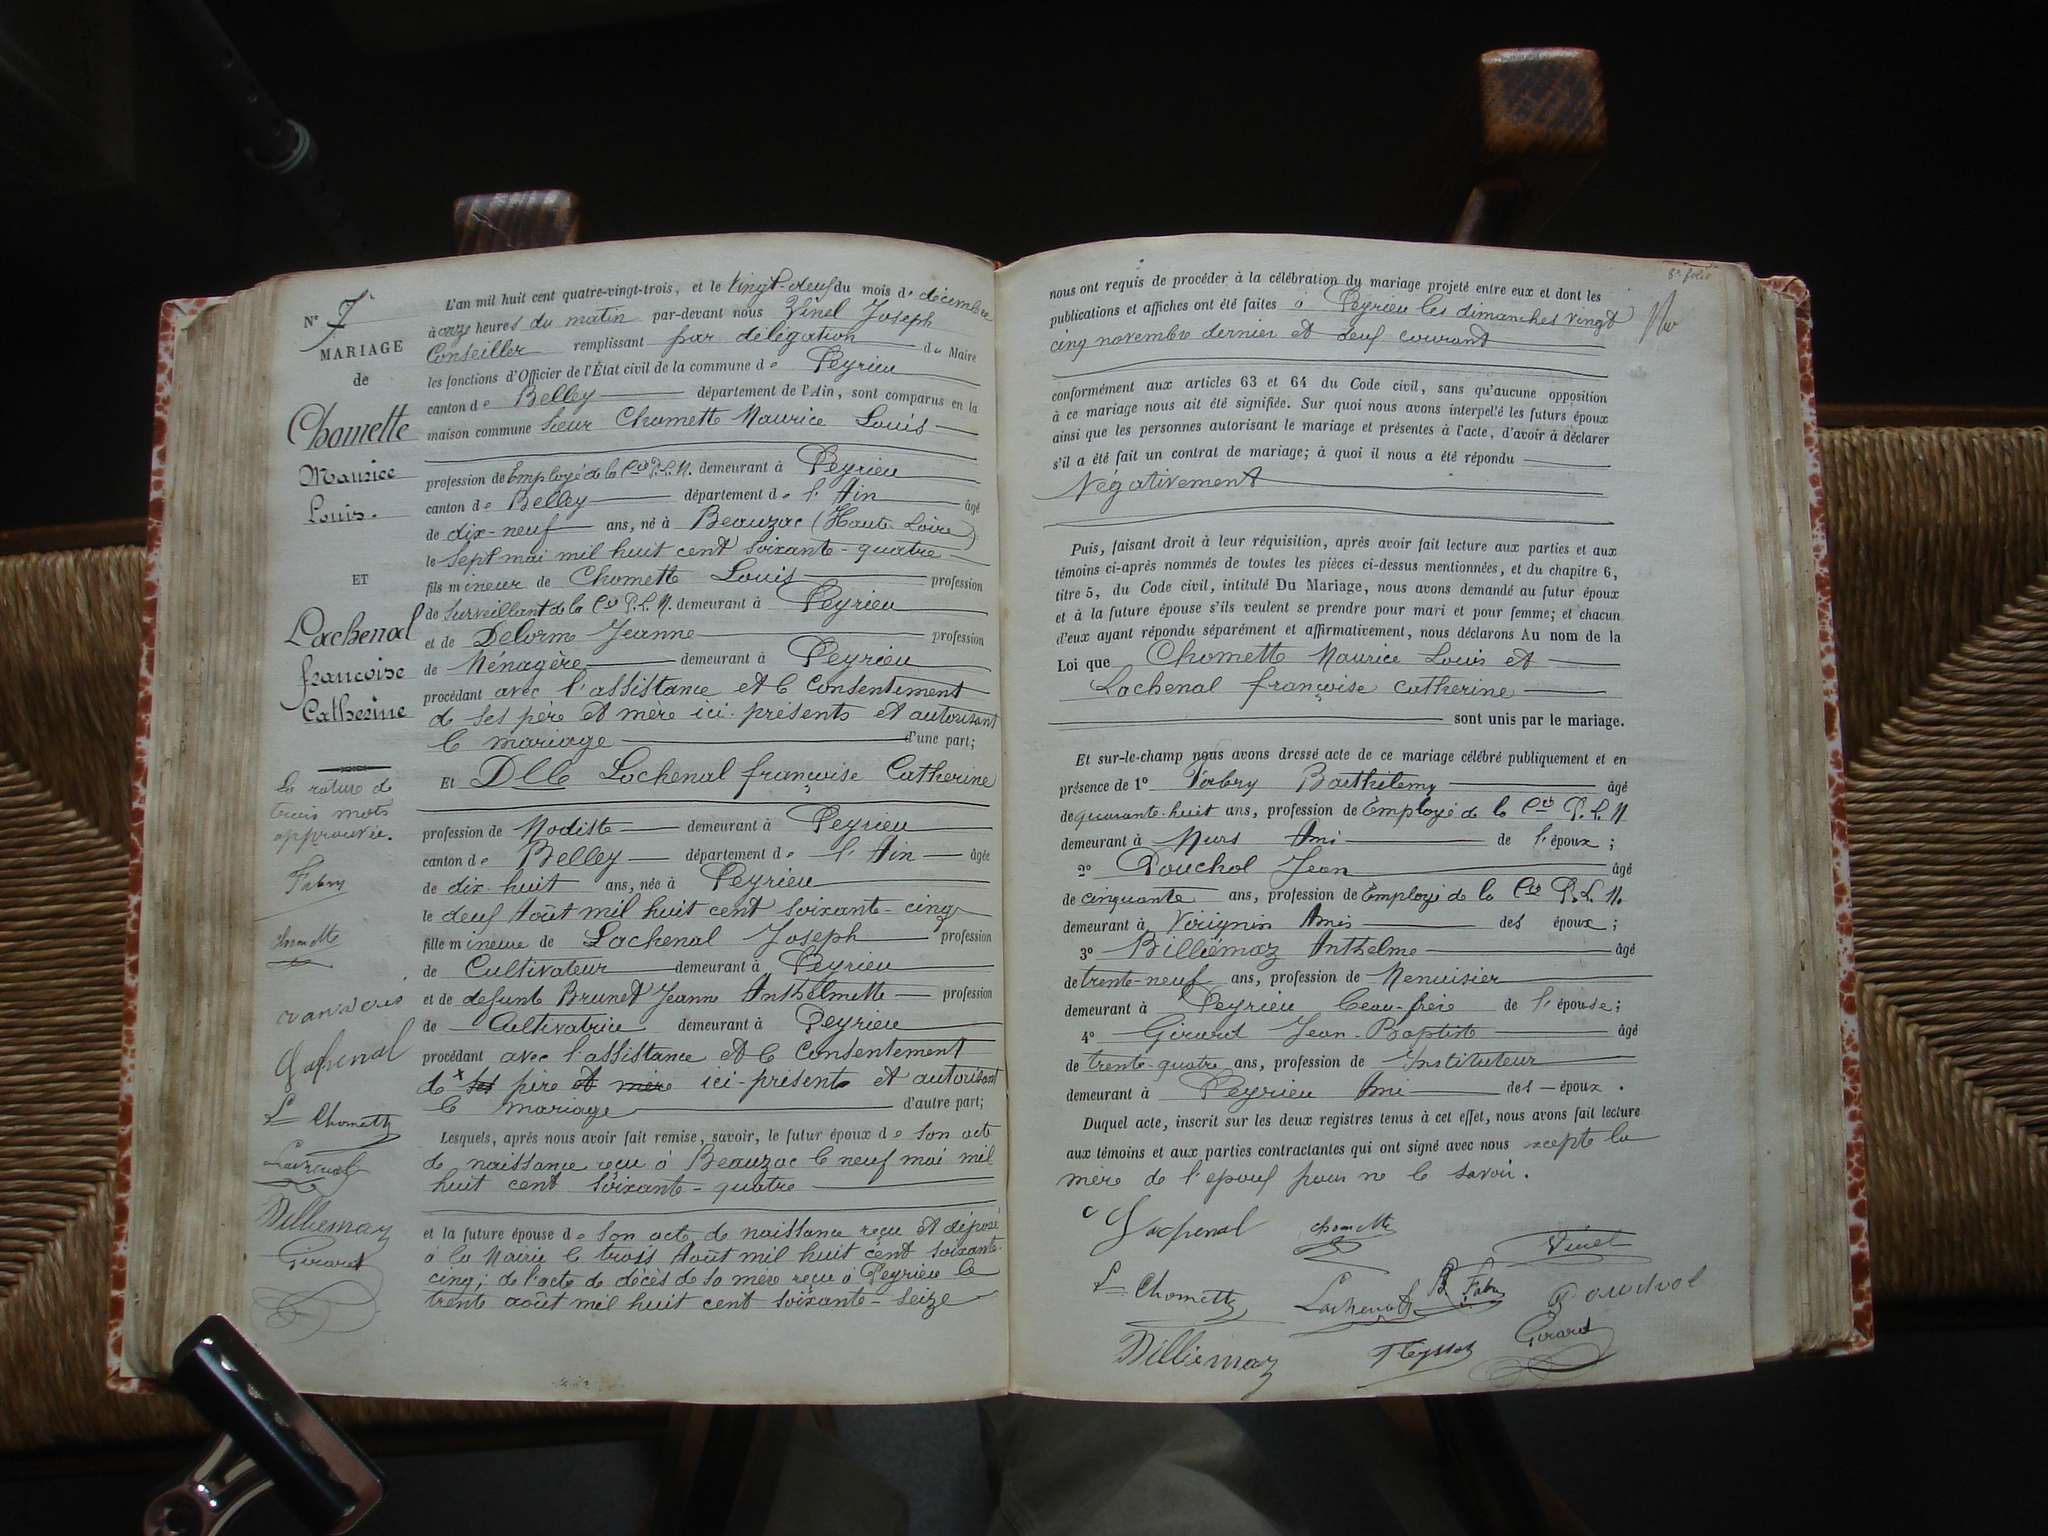 N° 7
MARIAGE
de
Chomette
Maurice
Louis.
ET
Lachenal
françoise
Catherine
La rature de
trois mots
approuvée.
Fabry
chomette
Lachenal
Ls Chomette
Lachenal
Billiemaz
Girard
L'an mil huit cent quatre-vingt-trois, et le vingt-deux du mois de décembre
à onze heures du matin par-devant nous Vinel Joseph
Conseiller remplissant par délégation du Maire
les fonctions d'Officier de l'État civil de la commune de Peyrieu
canton de Belley département de l'Ain, sont comparus en la
maison commune Sieur Chomette Maurice Louis
profession de Employé de la Cie P. L. M. demeurant à Peyrieu
canton de Belley département de l'Ain âgé
de dix-neuf ans, né à Beauzac (Haute Loire)
le sept mai mil huit cent soixante-quatre
fils mineur de Chomette Louis profession
de Surveillant de la Cie P. L. M. demeurant à Peyrieu
et de Delorme Jeanne profession
de Ménagère demeurant à Peyrieu
procédant avec l'assistance et le consentement
de ses père et mère ici-présents et autorisant
le mariage d'une part;
Et Dlle Lachenal françoise Catherine
profession de Modiste demeurant à Peyrieu
canton de Belley département de l'Ain âgée
de dix huit ans, née à Peyrieu
le deux Août mil huit cent soixante-cinq
fille mineure de Lachenal Joseph profession
de Cultivateur demeurant à Peyrieu
et de defunte Brunet Jeanne Anthelmette profession
de Cultivatrice demeurant à Peyrieu
procédant avec l'assistance et le consentement
de x ses père et mère ici-présent et autorisant
le mariage d'autre part;
Lesquels, après nous avoir fait remise, savoir, le futur époux de son acte
de naissance reçu à Beauzac le neuf mai mil
huit cent soixante-quatre
et la future épouse de son acte de naissance reçu et déposé
à la Mairie le trois Août mil huit cent soixante-
cinq; de l'acte de décès de sa mère reçu à Peyrieu le
trente août mil huit cent soixante-seize
8e folio
nous ont requis de procéder à la célébration du mariage projeté entre eux et dont les
publications et affiches ont été faites à Peyrieu les dimanches vingt
cinq novembre dernier et deux courant
conformément aux articles 63 et 64 du Code civil, sans qu'aucune opposition
à ce mariage nous ait été signifiée. Sur quoi nous avons interpellé les futurs époux
ainsi que les personnes autorisant le mariage et présentes à l'acte, d'avoir à déclarer
s'il a été fait un contrat de mariage; à quoi il nous a été répondu
Négativement
Puis, faisant droit à leur réquisition, après avoir fait lecture aux parties et aux
témoins ci-après nommés de toutes les pièces ci-dessus mentionnées, et du chapitre 6,
titre 5, du Code civil, intitulé Du Mariage, nous avons demandé au futur époux
et à la future épouse s'ils veulent se prendre pour mari et pour femme; et chacun
d'eux ayant répondu séparément et affirmativement, nous déclarons Au nom de la
Loi que Chomette Maurice Louis et
Lachenal françoise catherine
sont unis par le mariage.
Et sur-le-champ nous avons dressé acte de ce mariage célébré publiquement et en
présence de 1° Fabry Barthélemy âgé
de quarante-huit ans, profession de Employé de la Cie P. L. M.
demeurant à Murs Ami de l'époux;
2° Pouchol Jean âgé
de cinquante ans, profession de Employé de la Cie P. L. M.
demeurant à Virignin Amis des époux;
3° Billiémaz Anthelme âgé
de trente-neuf ans, profession de Menuisier
demeurant à Peyrieu beau-frère de l'épouse;
4° Girard Jean-Baptiste âgé
de trente-quatre ans, profession de Instituteur
demeurant à Peyrieu Ami des époux.
Duquel acte, inscrit sur les deux registres tenus à cet effet, nous avons fait lecture
aux témoins et aux parties contractantes qui ont signé avec nous excepté la
mère de l'époux pour ne le savoir.
Lachenal chomette Vinel
Ls Chomette Lachenal B Fabry Pouchol
Billiemaz Teysset Girard